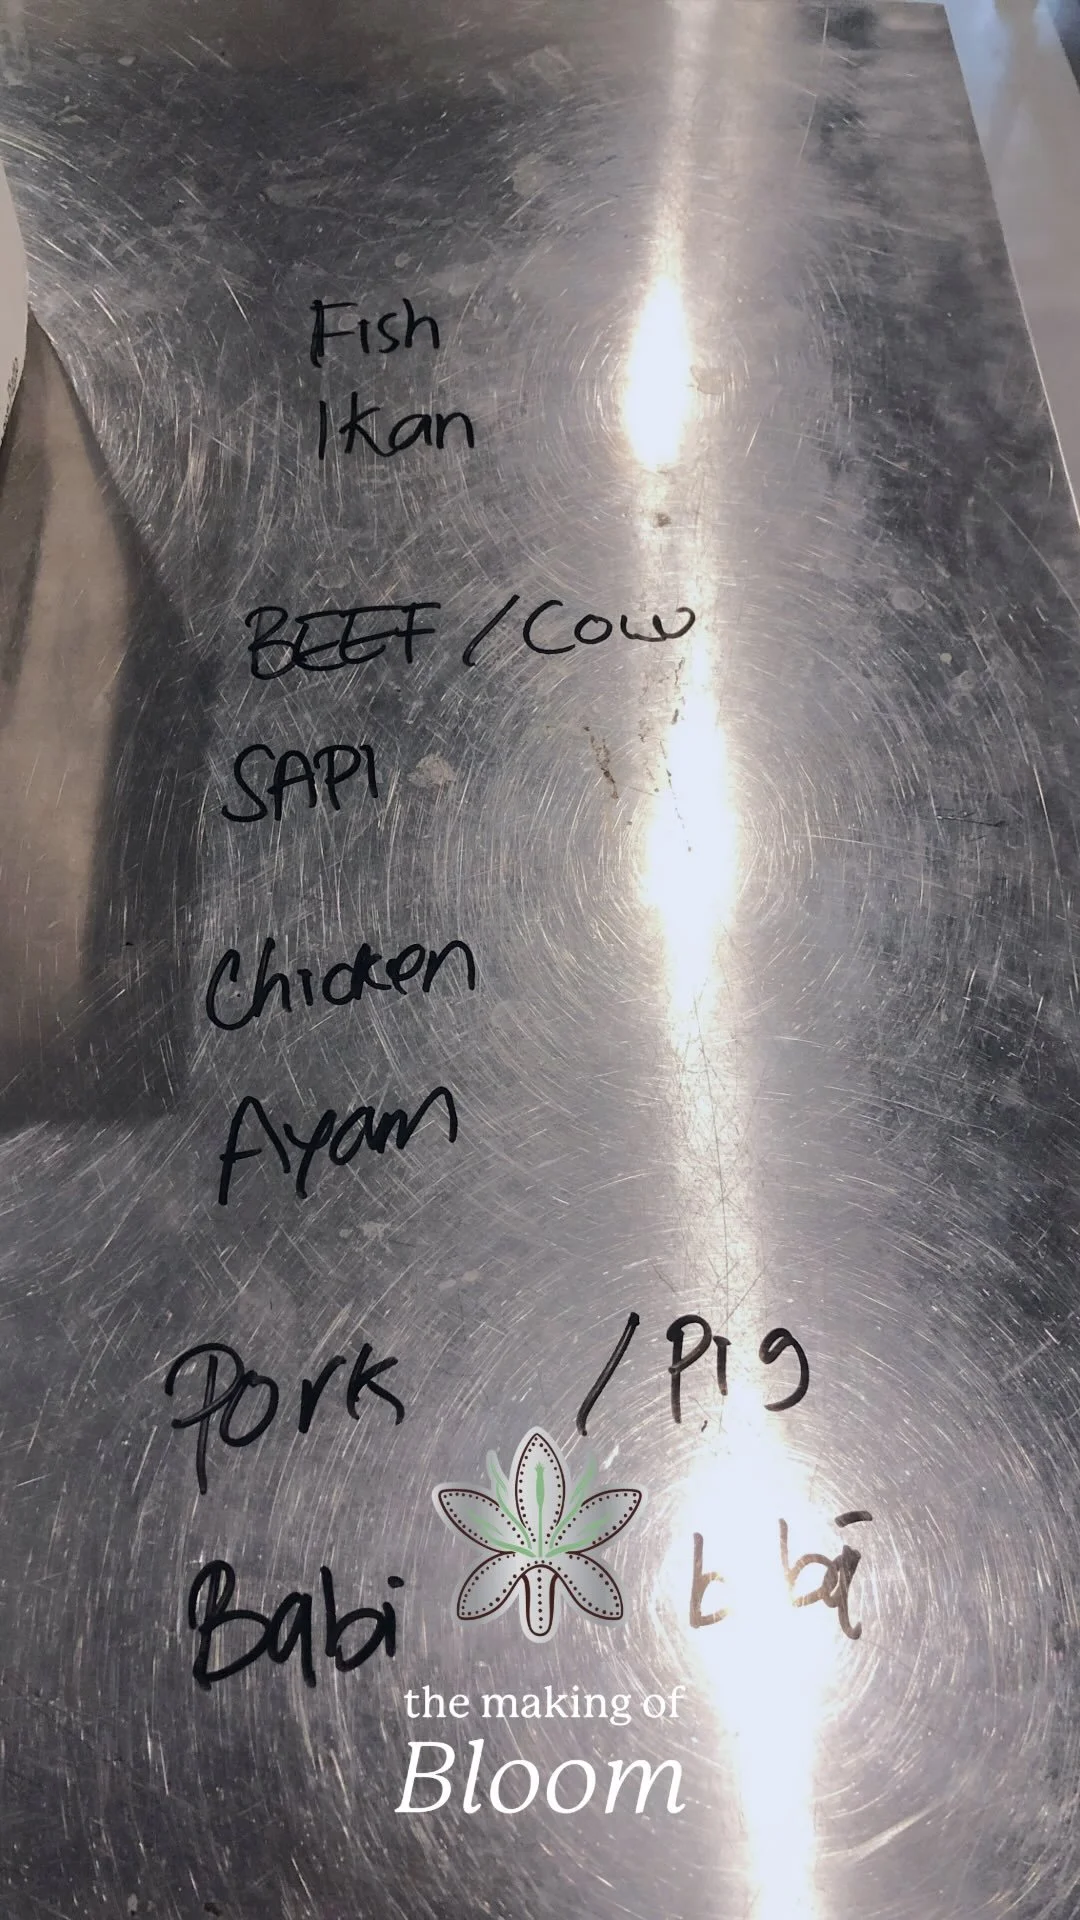 Fish
Ikan
BEEF / Cow
SAPI
Chicken
Ayam
Pork / Pig
Babi
the making of
Bloom